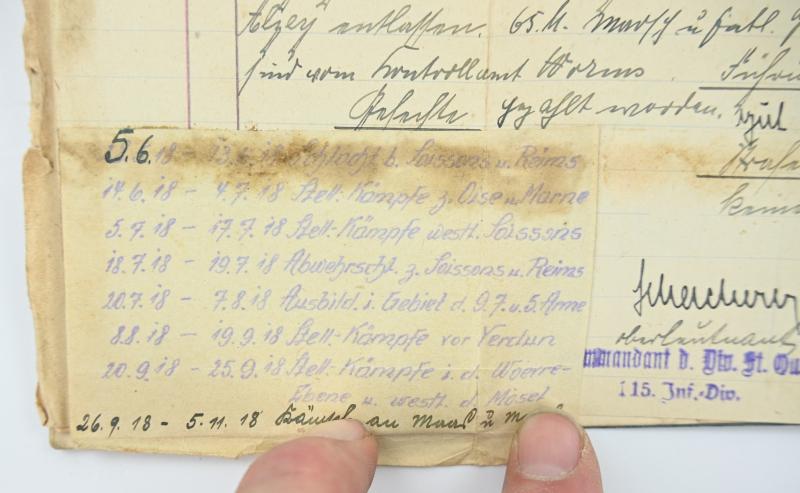 Alzey" entlassen. 65 M. Marsch u.
sind vom Kontrollamt Worms
Gefechte gezahlt worden. gut
5.6.18 - 13.6.18 Schlacht b. Soissons u. Reims
14.6.18 - 4.7.18 Stell.-Kämpfe z. Oise u. Marne
5.7.18 - 17.7.18 Stell.-Kämpfe westl. Soissons
18.7.18 - 19.7.18 Abwehrscht. z. Soissons u. Reims
20.7.18 - 7.8.18 Ausbild. i. Gebiet d. 9. 7. u. 5. Arme
8.8.18 - 19.9.18 Stell.-Kämpfe vor Verdun
20.9.18 - 25.9.18 Stell.-Kämpfe i. d. Woevre-
Ebene u. westl. d. Mosel
26.9.18 - 5.11.18 an Maas u
oberleutnant
mmandant d. Div. St. Qu
115. Inf.-Div.